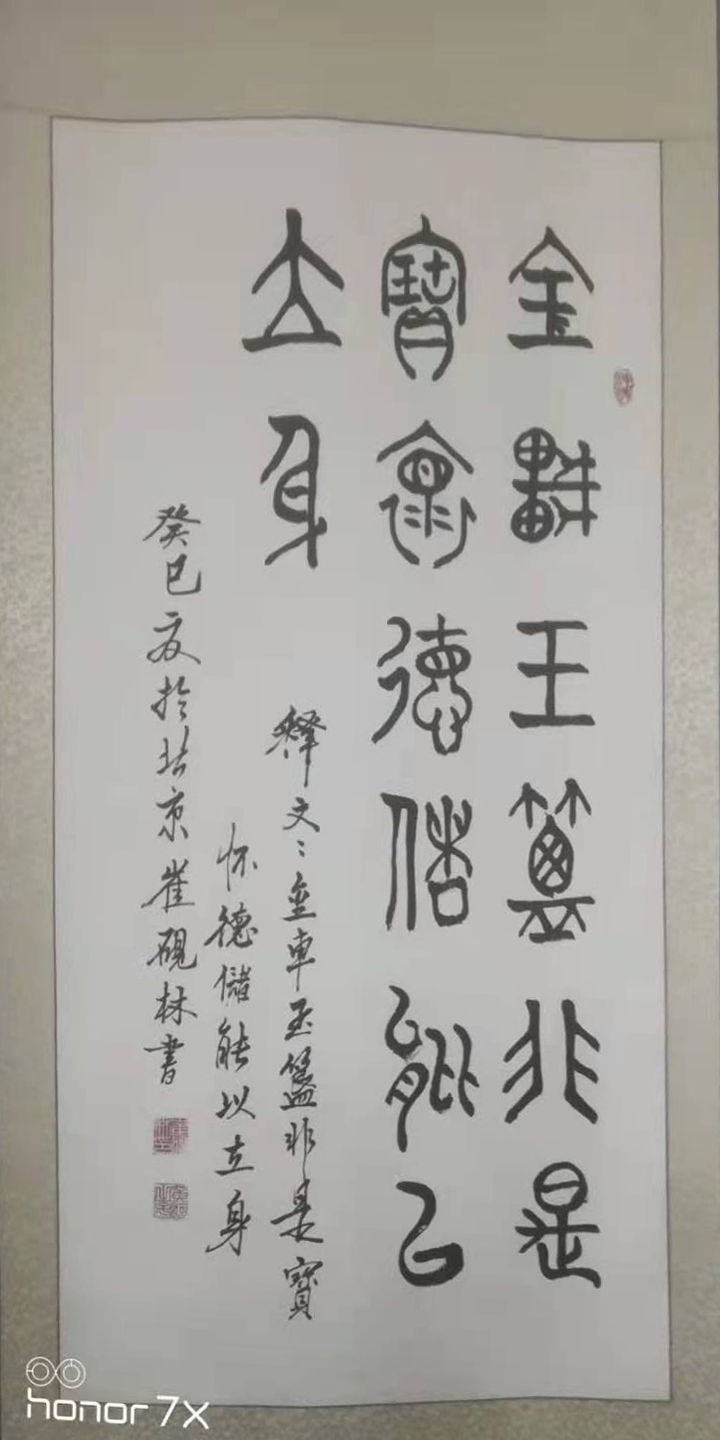 金車玉簋非是
寶懷德儲能以
立身
釋文：金車玉簋非是寶
怀德儲能以立身
癸巳夏於北京崔硯林書
honor 7X